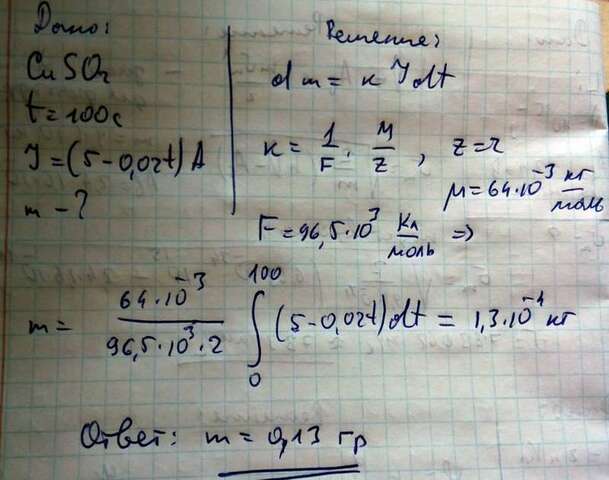 Дано:
CuSO₂
t=100c
J=(5-0,02t)A
m-?
Решение:
dm = к Jdt
к = 1/F · M/Z , z=2
μ=64·10⁻³ кг/моль
F=96,5·10³ Кл/моль =>
m = 64·10⁻³/96,5·10³·2 ∫₀¹⁰⁰ (5-0,02t)dt = 1,3·10⁻⁴ кг
Ответ: m = 0,13 гр